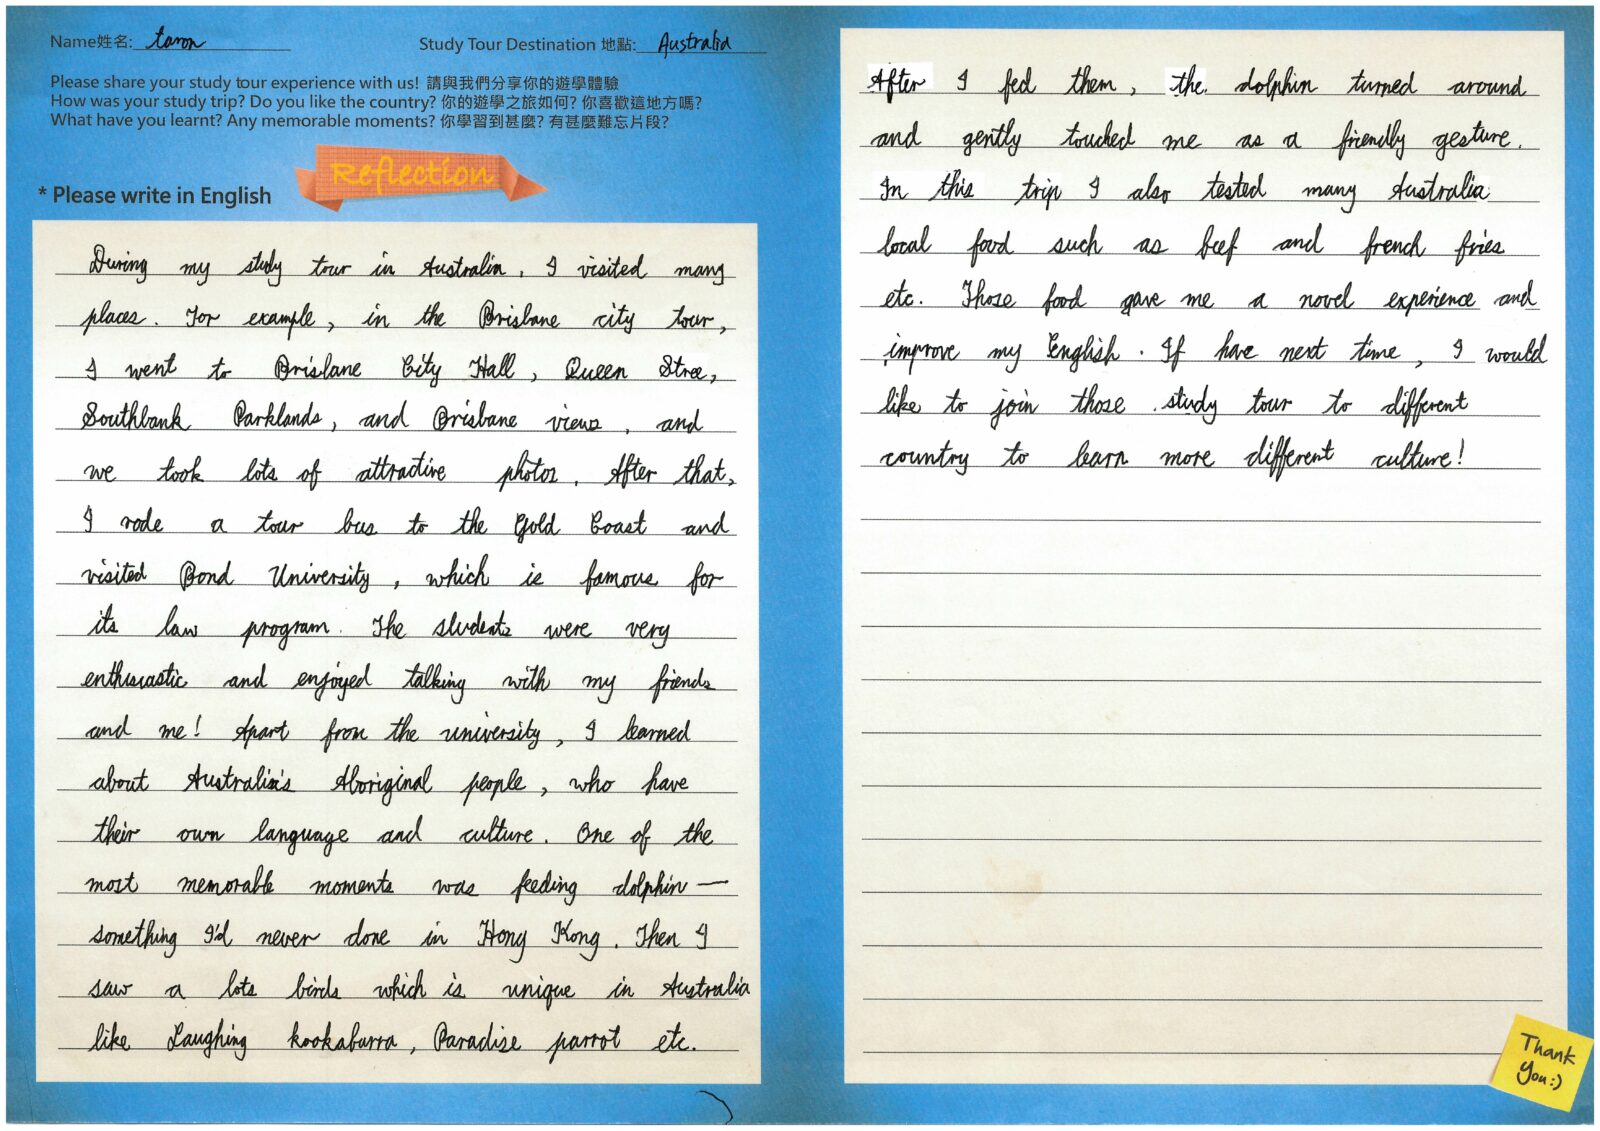 Name姓名: taron
Study Tour Destination 地點: Australia
Please share your study tour experience with us! 請與我們分享你的遊學體驗
How was your study trip? Do you like the country? 你的遊學之旅如何? 你喜歡這地方嗎?
What have you learnt? Any memorable moments? 你學習到甚麼? 有甚麼難忘片段?
Reflection
* Please write in English
During my study tour in Australia, I visited many
places. For example, in the Brisbane city tour,
I went to Brisbane City Hall, Queen Stree,
Southbank Parklands, and Brisbane views, and
we took lots of attractive photos. After that,
I rode a tour bus to the Gold Coast and
visited Bond University, which is famous for
its law program. The students were very
enthusiastic and enjoyed talking with my friends
and me! Apart from the university, I learned
about Australia's Aboriginal people, who have
their own language and culture. One of the
most memorable moments was feeding dolphin—
something I'd never done in Hong Kong. Then I
saw a lots birds which is unique in Australia
like Laughing kookaburra, Paradise parrot etc.
After I fed them, the dolphin turned around
and gently touched me as a friendly gesture.
In this trip I also tested many Australia
local food such as beef and french fries
etc. Those food gave me a novel experience and
improve my English. If have next time, I would
like to join those study tour to different
country to learn more different culture!
Thank
You:)